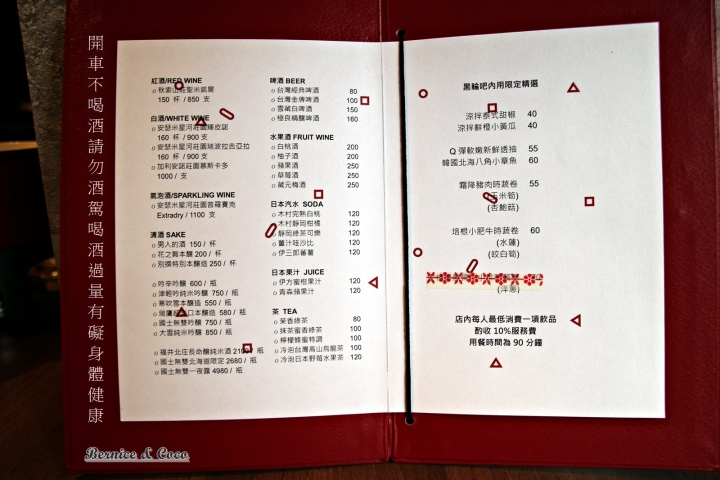 開車不喝酒請勿酒駕喝酒過量有礙身體健康
紅酒/RED WINE
150 杯 / 850 支
白酒/WHITE WINE
160 杯 / 900 支
安瑟米星河莊園瑞波拉吉亞拉
160 杯 / 900 支
加利安諾莊園慕斯卡多
1000 / 支
氣泡酒/SPARKLING WINE
安瑟米星河莊園首羅賽克
Extradry / 1100 支
清酒 SAKE
男人的酒 150 / 杯
花之舞本釀 200 / 杯
別撰特別本釀造 250 / 杯
吟辛吟釀 600 / 瓶
津輕吟純米吟釀 750 / 瓶
寒紋雪本釀造 550 / 瓶
口本釀造 580 / 瓶
國士無雙吟釀 750 / 瓶
大雪純米吟釀 850 / 瓶
福井北庄長命釀純米酒 瓶
國士無雙北海道限定 2680 / 瓶
國士無雙一夜露 4980 / 瓶
啤酒 BEER
台灣經典啤酒 80
台灣金牌啤酒 100
雪藏白啤酒 150
極良精釀啤酒 160
水果酒 FRUIT WINE
白桃酒 200
柚子酒 200
蘋果酒 250
草莓酒 250
藏元梅酒 250
日本汽水 SODA
木村完熟白桃 120
木村靜岡柑橘 120
靜岡綠茶可樂 120
薑汁哇沙比 120
伊三郎蕃薯 120
日本果汁 JUICE
伊方蜜柑果汁 120
青森蘋果汁 120
茶 TEA
茉香綠茶 80
抹茶蜜香綠茶 100
檸檬蜂蜜特調 100
冷泡台灣高山烏龍茶 100
冷泡日本野莓水果茶 120
黑輪吧內用限定精選
涼拌泰式甜椒 40
涼拌鮮橙小黃瓜 40
Q 彈軟嫩新鮮透抽 55
韓國北海八角小章魚 60
霜降豬肉時蔬卷 55
米筍)
(杏鮑菇)
培根小肥牛時蔬卷 60
(水蓮)
(皎白筍)
(洋蔥)
店內每人最低消費一項飲品
酌收 10%服務費
用餐時間為 90 分鐘
Bernice & Coco